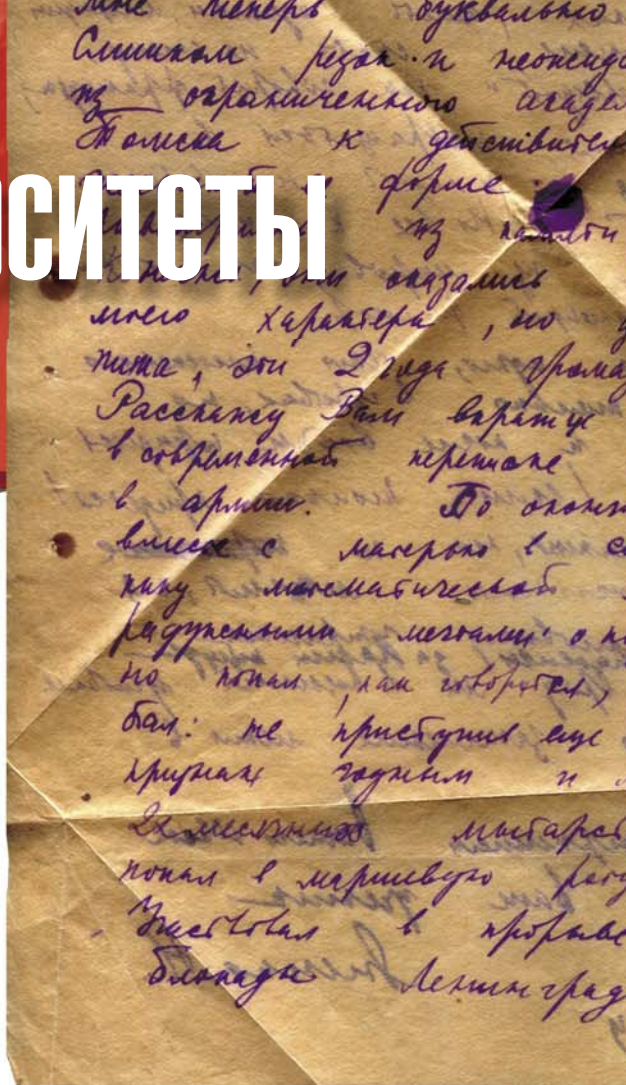 мне теперь буквально
Слишком резок и неожида
из ограниченного академ
Томска к действител
форме
из памяти
оказались
моего характера, но
эти 2 года грома
Расскажу Вам вкратце
в современной переписке
в армии. По оконч
вместе с матерью в
математической
радужными мечтами о
но попал, как говорится,
бал: не приступив еще
признан годным и
2х месячных мытарст
попал в маршевую роту
Участвовал в прорыве
блокады Ленинград
ситеты